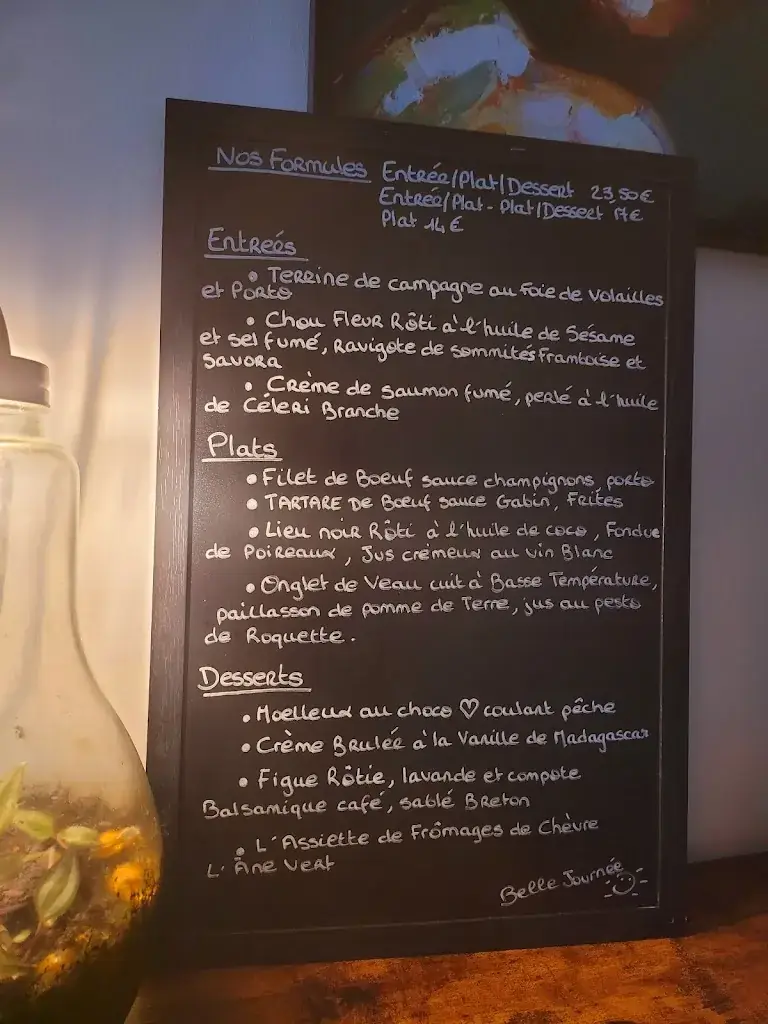 Nos Formules Entrée/Plat/Dessert 23,50€
Entrée/Plat - Plat/Dessert 17€
Plat 14€
Entreés
• Terrine de campagne au Foie de Volailles
et Porto
• Chou Fleur Rôti à l'huile de Sésame
et sel fumé, Ravigote de sommités framboise et
Savora
• Crème de saumon fumé, perlé à l'huile
de Céleri Branche
Plats
• Filet de Boeuf sauce champignons, porto
• TARTARE De Boeuf sauce Gabin, Frites
• Lieu noir Rôti à l'huile de coco, Fondue
de Poireaux, Jus crémeux au vin Blanc
• Onglet de Veau cuit à Basse Température,
paillasson de pomme de Terre, jus au pesto
de Roquette.
Desserts
• Moelleux au choco ♡ coulant pêche
• Crème Brulée à la Vanille de Madagascar
• Figue Rôtie, lavande et compote
Balsamique café, sablé Breton
• L'Assiette de Frômages de Chèvre
L'Âne Vert
Belle Journée